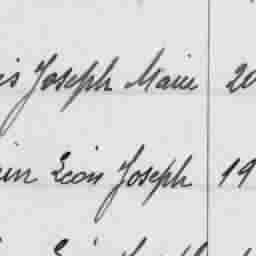 is Joseph Marie 20
in Léon Joseph 19